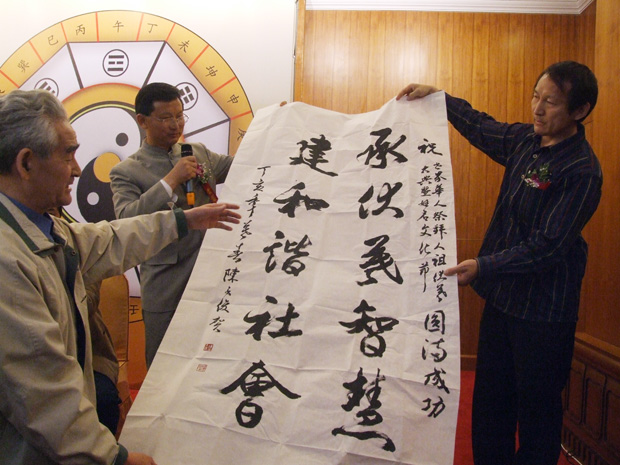 巽 巳 丙 午 丁 未 坤 申
壬
祝
世界华人祭拜人祖伏羲
大典暨姓名文化节
圆满成功
承伏羲智慧
建和谐社會
丁亥季春陳俊贺